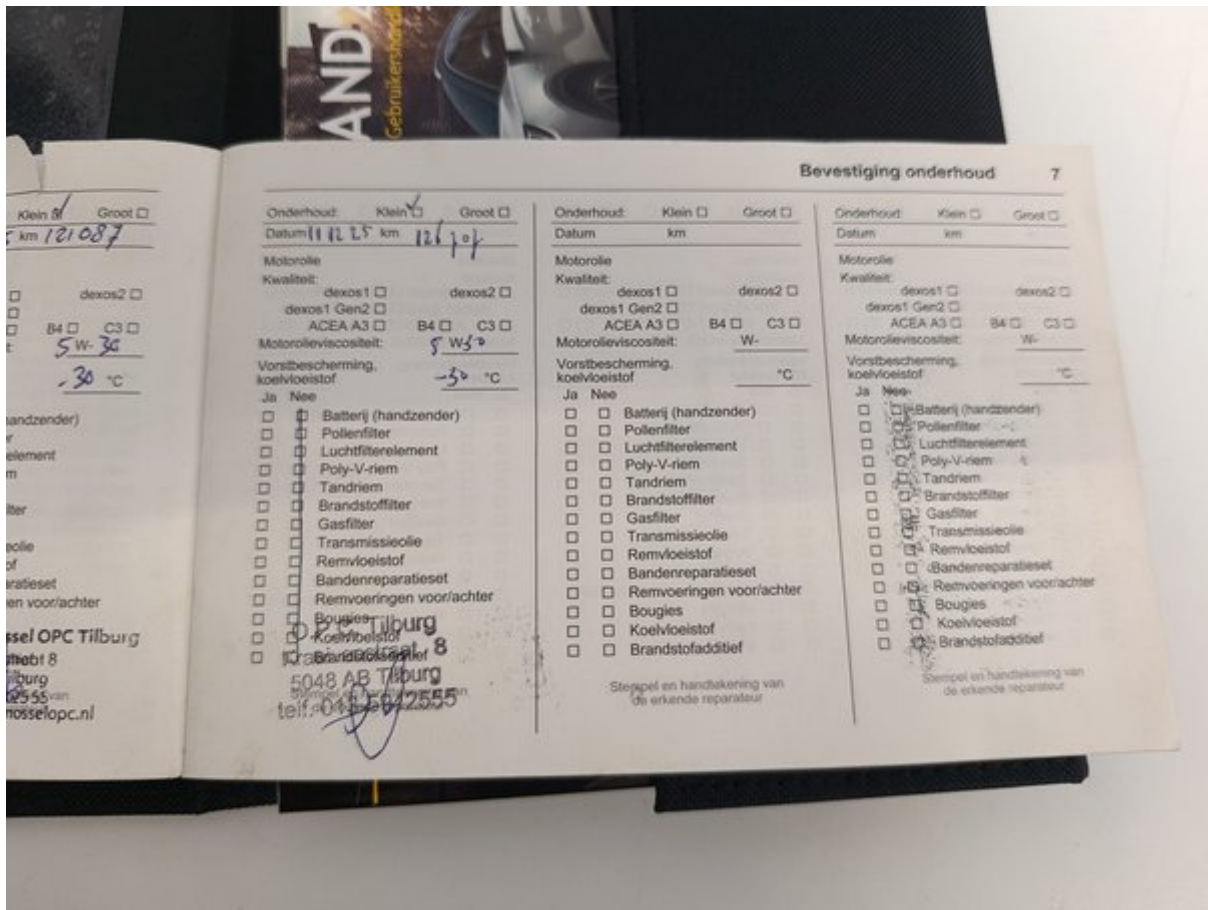 AND
Gebruikershand
Bevestiging onderhoud 7
Klein Groot
km 121087
dexos2
B4 C3
5 W-30
-30 °C
andzender)
element
m
ilter
eolie
of
aratieset
en voor/achter
ssel OPC Tilburg
8
burg
2555
nosselopc.nl
Onderhoud: Klein Groot
Datum 11 12 25 km
Motorolie
Kwaliteit:
dexos1 dexos2
dexos1 Gen2
ACEA A3 B4 C3
Motorolieviscositeit: 5 W30
Vorstbescherming,
koelvloeistof -30 °C
Ja Nee
Batterij (handzender)
Pollenfilter
Luchtfilterelement
Poly-V-riem
Tandriem
Brandstoffilter
Gasfilter
Transmissieolie
Remvloeistof
Bandenreparatieset
Remvoeringen voor/achter
Bougies
Koelvloeistof
Brandstofadditief
O.P.C. Tilburg
8
5048 AB Tilburg
Stempel en handtekening van
telf. 013 5942555
Onderhoud: Klein Groot
Datum km
Motorolie
Kwaliteit:
dexos1 dexos2
dexos1 Gen2
ACEA A3 B4 C3
Motorolieviscositeit: W-
Vorstbescherming,
koelvloeistof °C
Ja Nee
Batterij (handzender)
Pollenfilter
Luchtfilterelement
Poly-V-riem
Tandriem
Brandstoffilter
Gasfilter
Transmissieolie
Remvloeistof
Bandenreparatieset
Remvoeringen voor/achter
Bougies
Koelvloeistof
Brandstofadditief
Stempel en handtekening van
de erkende reparateur
Onderhoud: Klein Groot
Datum km
Motorolie
Kwaliteit:
dexos1 dexos2
dexos1 Gen2
ACEA A3 B4 C3
Motorolieviscositeit: W-
Vorstbescherming,
koelvloeistof °C
Ja Nee
Batterij (handzender)
Pollenfilter
Luchtfilterelement
Poly-V-riem
Tandriem
Brandstoffilter
Gasfilter
Transmissieolie
Remvloeistof
Bandenreparatieset
Remvoeringen voor/achter
Bougies
Koelvloeistof
Brandstofadditief
Stempel en handtekening van
de erkende reparateur